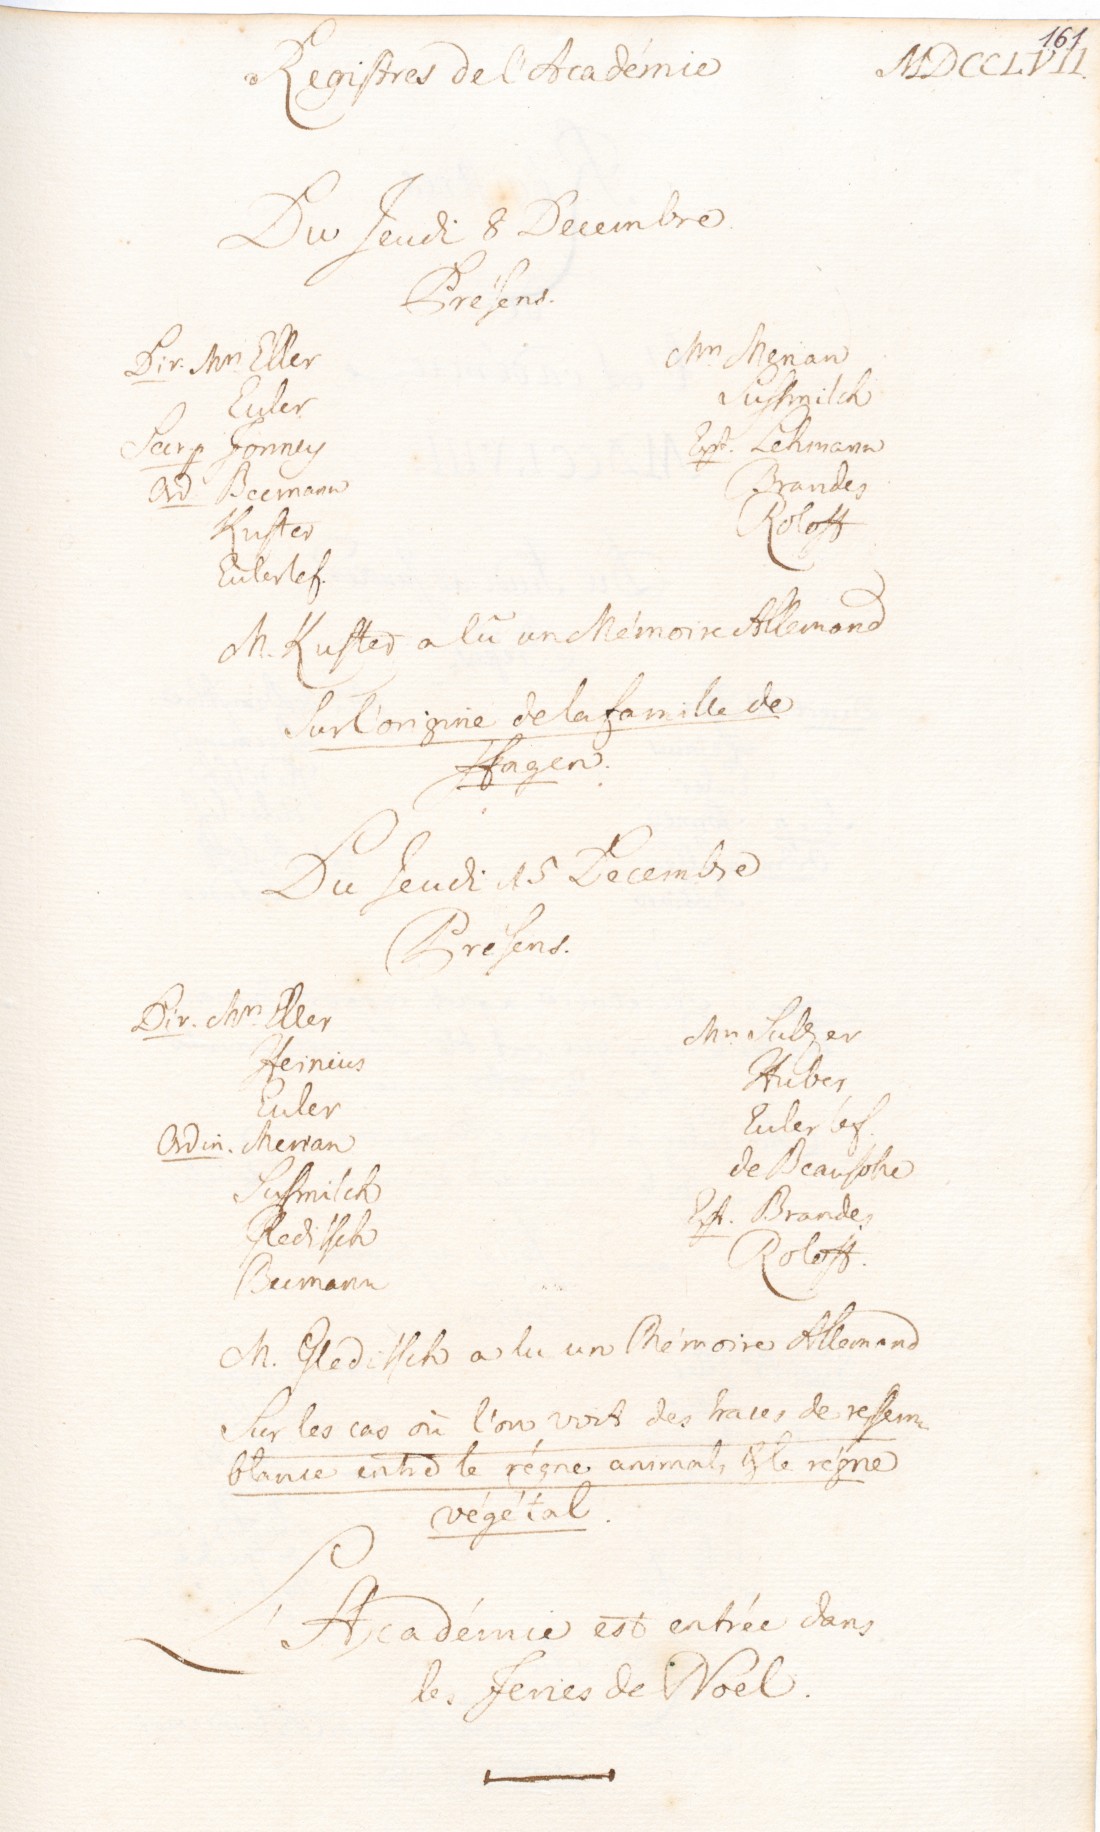 161
Registres de l'Académie MDCCLVII.
Du Jeudi 8 Decembre
Présens.
Dir. Mrs Eller
Euler
Formey
Ord Becmann
Kuster
Euler lef.
Mrs Merian
Sussmilch
Lehmann
Brandes
Roloff
M. Kuster a lû un Mémoire Allemand
Sur l'origine de la famille de
Hagen.
Du Jeudi 15 Decembre
Présens.
Dir. Mrs Eller
Heinius
Euler
Ordin. Merian
Susmilch
Gleditsch
Becmann
Mrs Sulzer
Huber
Euler lef.
de Beausobre
Brandes
Roloff.
M. Gleditsch a lu un Mémoire Allemand
Sur les cas où l'on voit des traces de ressem-
blance entre le régne animal, & le régne
végétal.
L'Académie est entrée dans
les Feries de Noel.